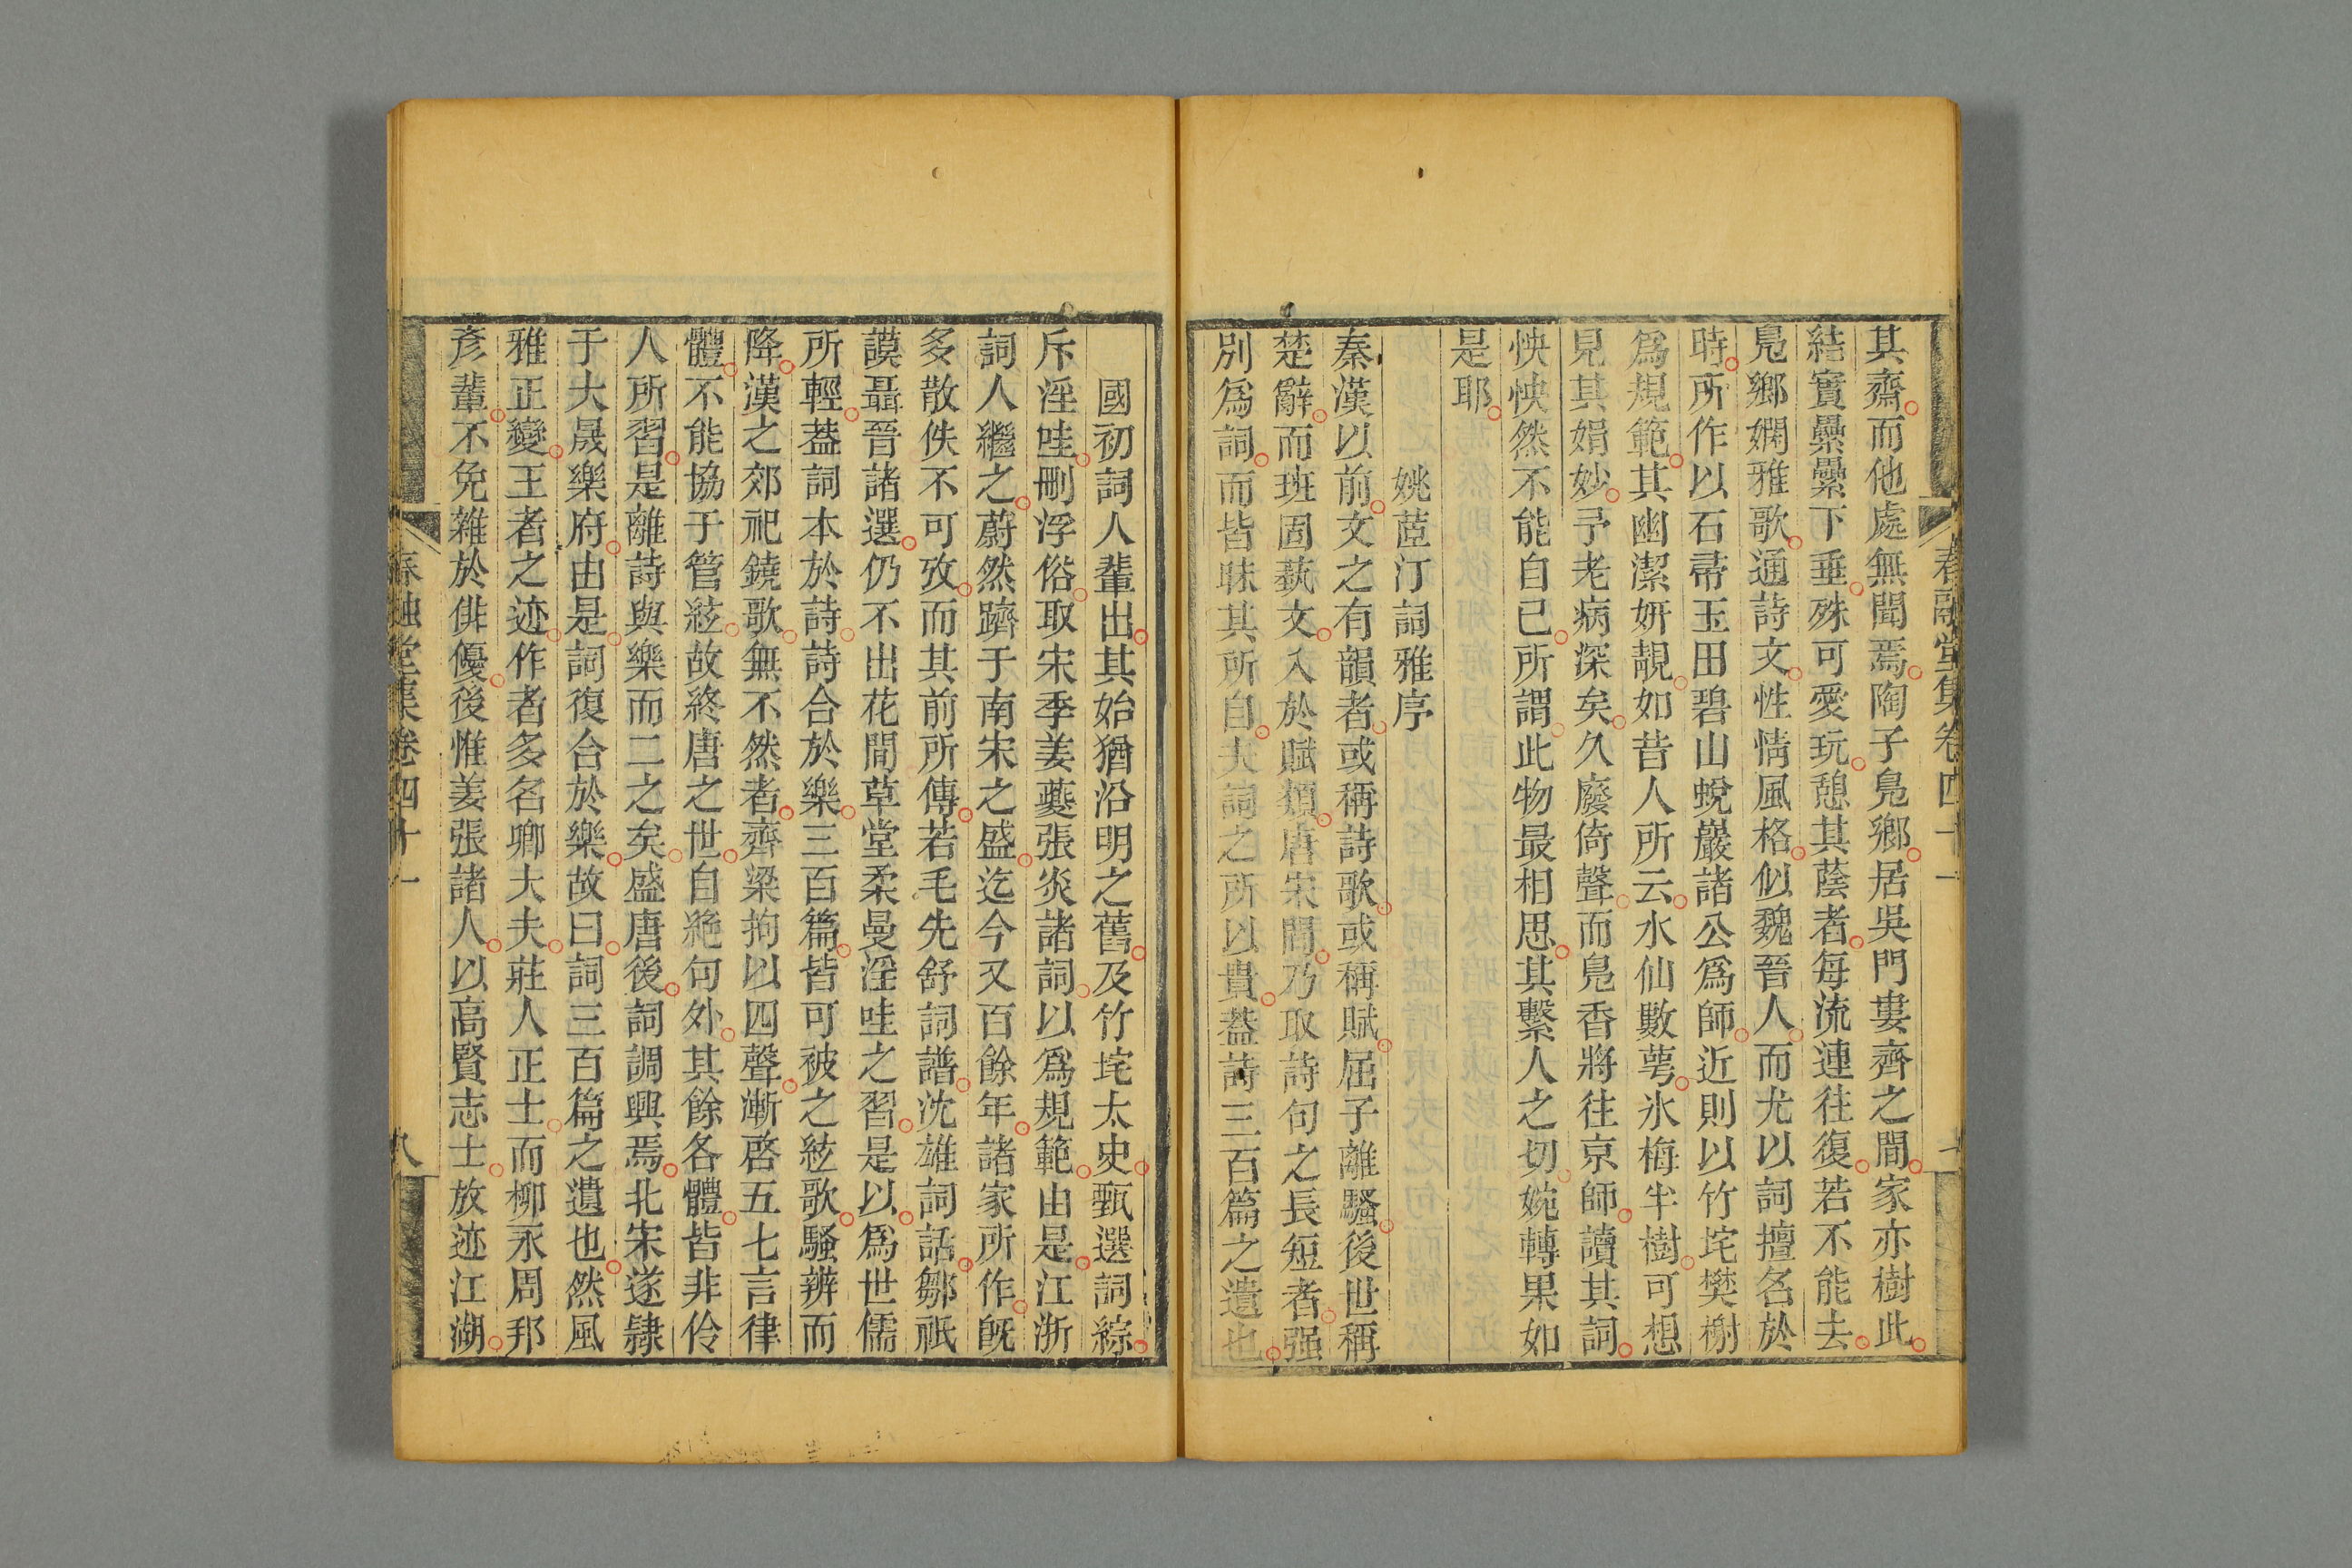 春融堂集卷四十一
其齋而他處無聞焉陶子鳧鄉居吳門婁齊之間家亦樹此
結實纍纍下垂殊可愛玩憩其蔭者每流連往復若不能去
鳧鄉嫻雅歌通詩文性情風格似魏晉人而尤以詞擅名於
時所作以石帚玉田碧山蛻巖諸公爲師近則以竹垞樊榭
爲規範其幽潔妍靚如昔人所云水仙數萼氷梅半樹可想
見其娟妙予老病深矣久廢倚聲而鳧香將往京師讀其詞
怏怏然不能自已所謂此物最相思其繫人之切婉轉果如
是耶
姚茝汀詞雅序
秦漢以前文之有韻者或稱詩歌或稱賦屈子離騷後世稱
楚辭而班固蓺文入於賦類唐宋間乃取詩句之長短者强
別爲詞而皆昧其所自夫詞之所以貴葢詩三百篇之遺也
國初詞人輩出其始猶沿明之舊及竹垞太史甄選詞綜
斥淫哇刪浮俗取宋季姜夔張炎諸詞以爲規範由是江浙
詞人繼之蔚然躋于南宋之盛迄今又百餘年諸家所作旣
多散佚不可攷而其前所傳若毛先舒詞譜沈雄詞話鄒祇
謨聶晉諸選仍不出花間草堂柔曼淫哇之習是以爲世儒
所輕葢詞本於詩詩合於樂三百篇皆可被之絃歌騷辨而
降漢之郊祀鐃歌無不然者齊梁拘以四聲漸啓五七言律
體不能協于管絃故終唐之世自絶句外其餘各體皆非伶
人所習是離詩與樂而二之矣盛唐後詞調興焉北宋遂隸
于大晟樂府由是詞復合於樂故曰詞三百篇之遺也然風
雅正變王者之迹作者多名卿大夫莊人正士而柳永周邦
彥輩不免雜於俳優後惟姜張諸人以高賢志士放迹江湖
春融堂集卷四十一
八